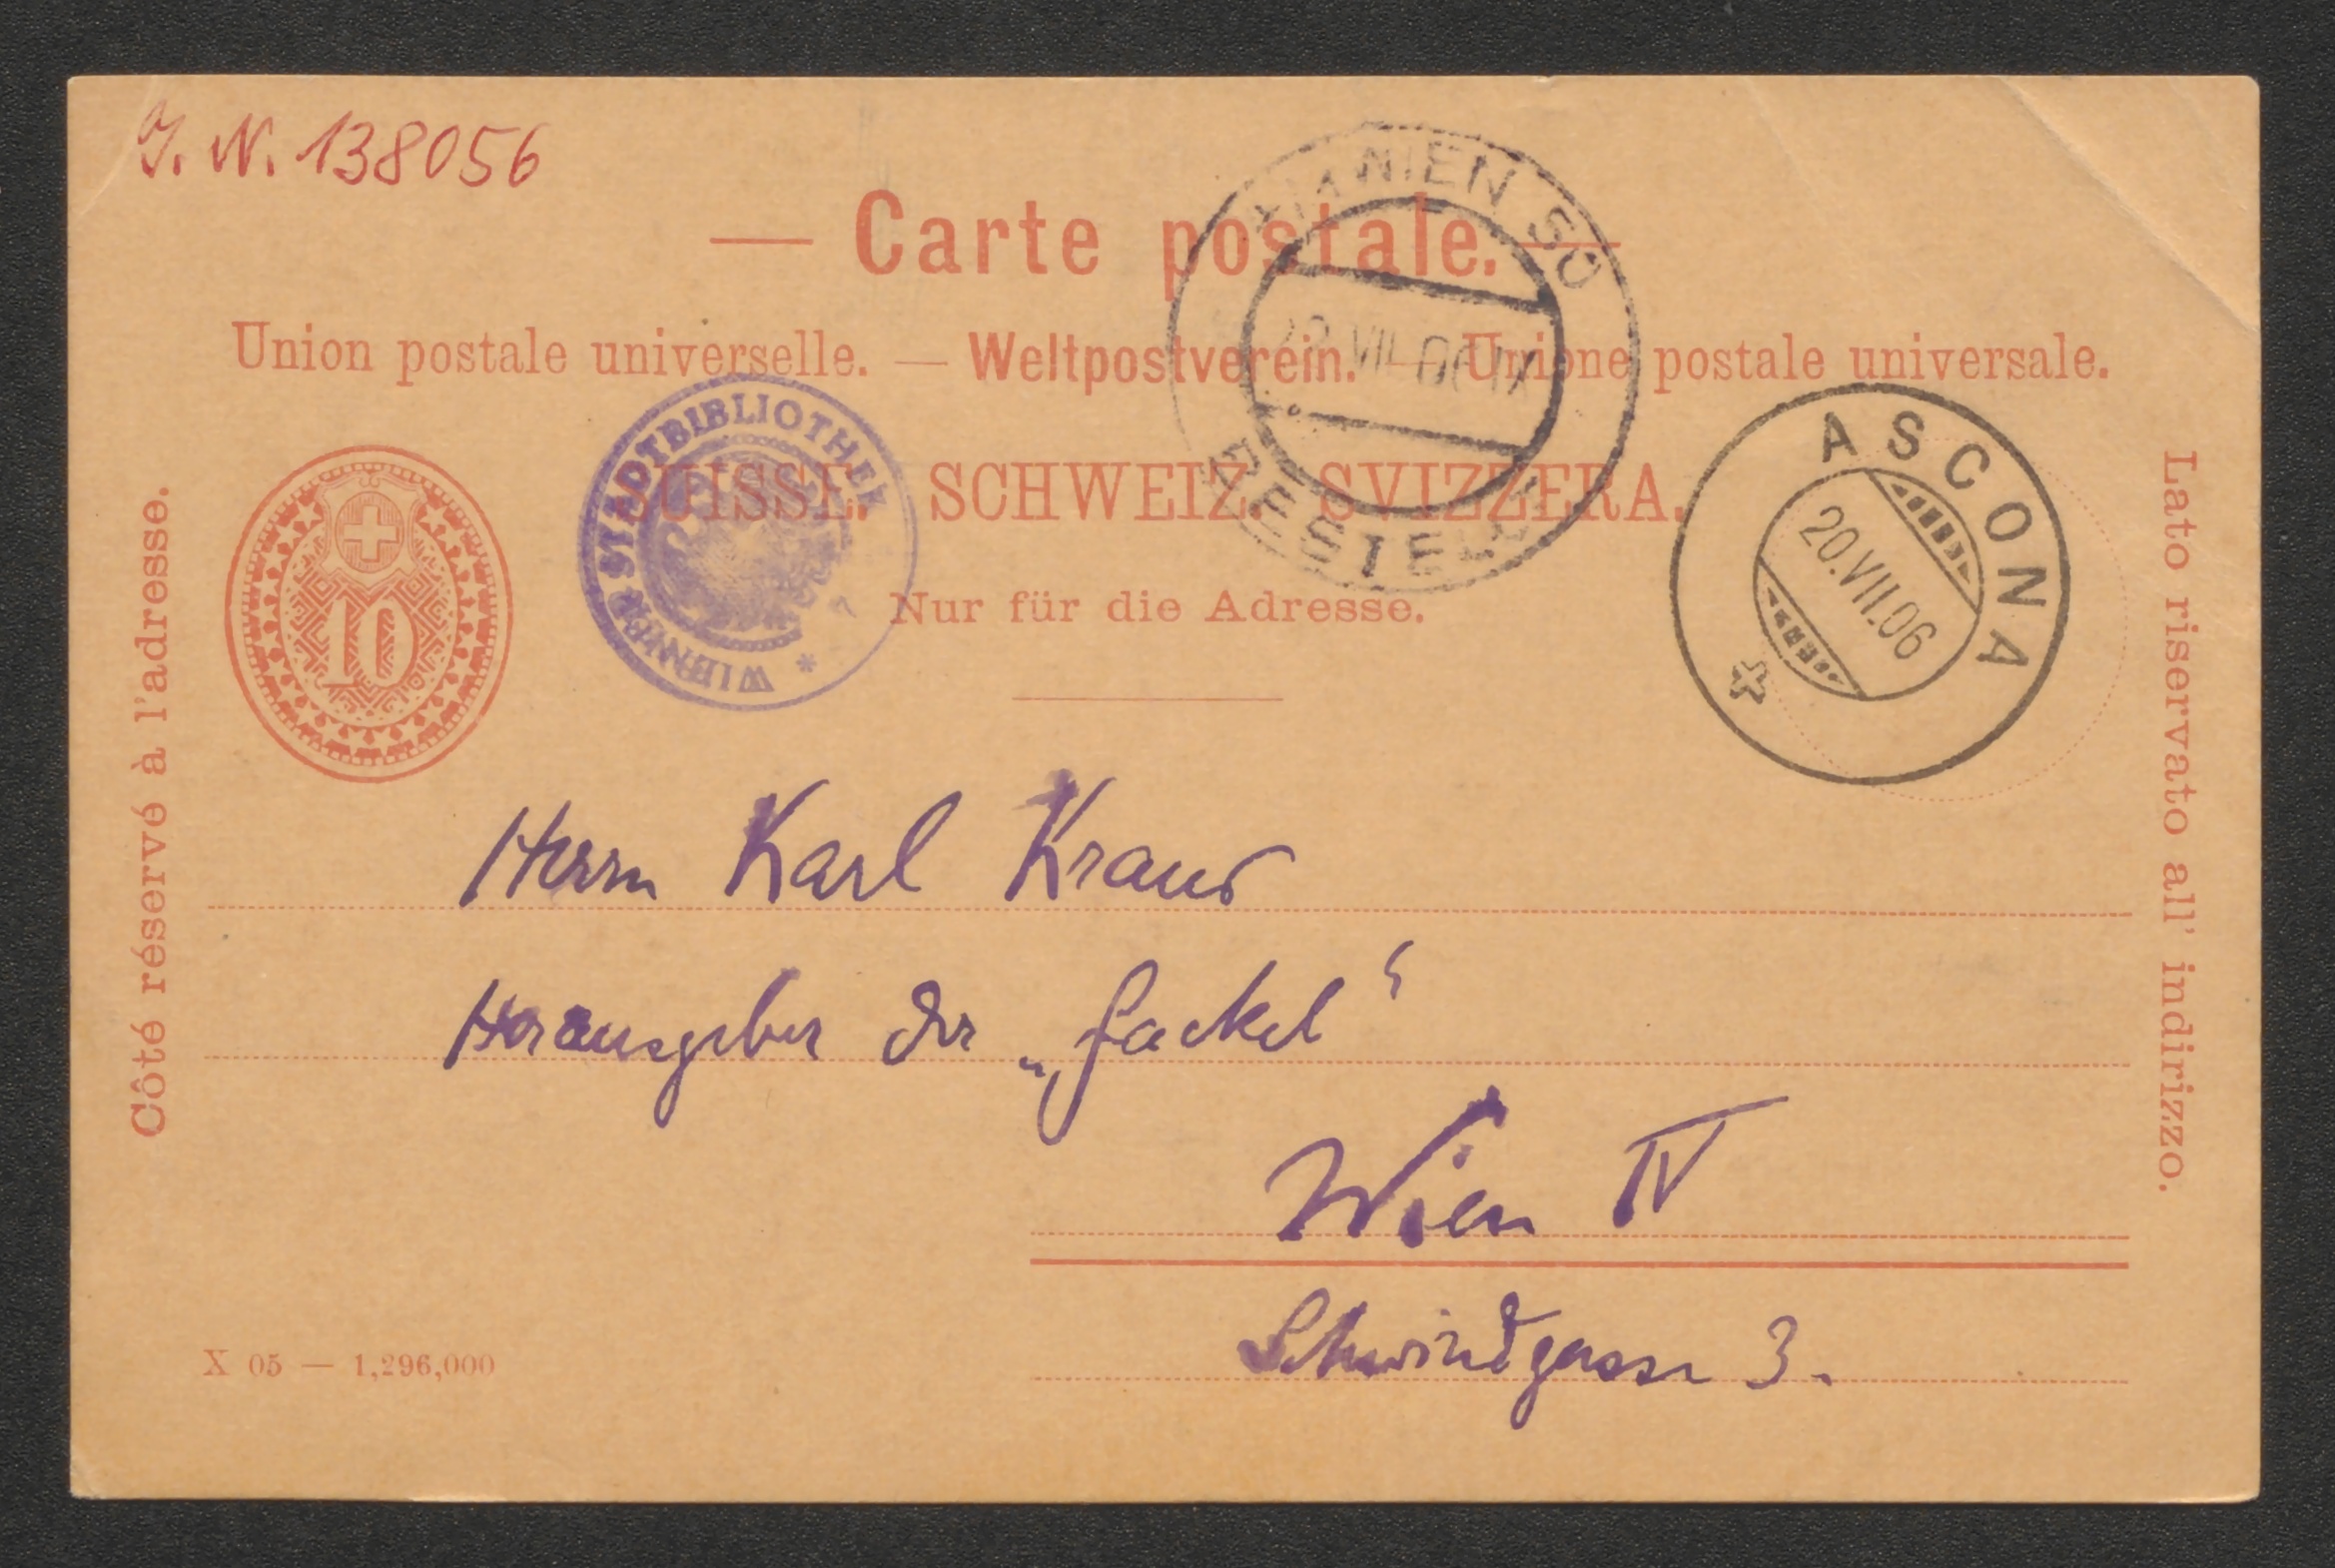 J. N. 138056
— Carte postale. —
Union postale universelle. — Weltpostverein. — Unione postale universale.
SUISSE. SCHWEIZ. SVIZZERA.
Nur für die Adresse.
Côté réservé à l'adresse.
Lato riservato all' indirizzo.
10
WIENER STADTBIBLIOTHEK *
WIEN
BESTELLT
22.VII.06
ASCONA
20.VII.06
Herrn Karl Kraus
Herausgeber der „Fackel“
Wien IV
Schwindgasse 3.
X 05 — 1,296,000